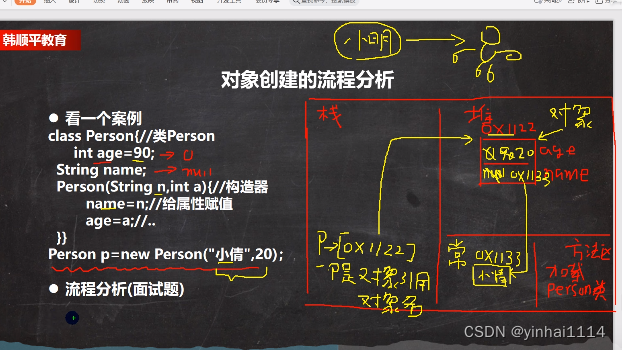 韩顺平教育
小明
对象创建的流程分析
● 看一个案例
class Person{//类Person
int age=90; → 0
String name; → null
Person(String n,int a){//构造器
name=n;//给属性赋值
age=a;//..
}}
Person p=new Person("小倩",20);
● 流程分析(面试题)
栈
堆
对象
0x1122
20
age
0x1133
name
P→[0x1122]
P是对象引用
对象名
常
0x1133
小倩
方法区
加载
Person类
CSDN @yinhai1114